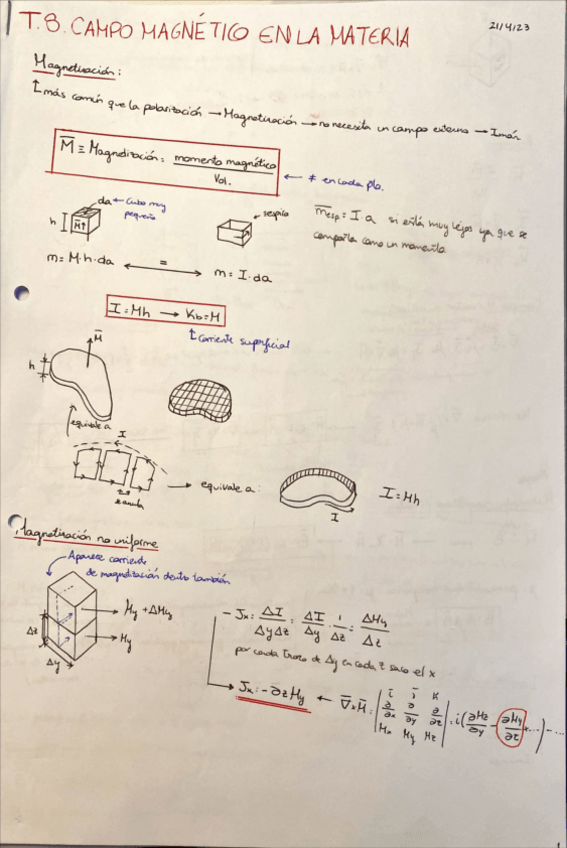 T.8. CAMPO MAGNÉTICO EN LA MATERIA
21/4/23
Magnetización:
↑ más común que la polarización → Magnetización → no necesita un campo externo → Imán
M̅ ≡ Magnetización: momento magnético / Vol.
← * en cada pto.
da ← Cubo muy pequeño
h
M↑
→ espira
m̅esp = I·a si está muy lejos ya que se
comporta como un momento
m = M·h·da ⟷ = m = I·da
I = Mh → Kb = M
↑ corriente superficial
M̅
h
equivale a
I
→ equivale a:
I
I = Mh
Magnetización no uniforme
Aparece corriente
de magnetización dentro también
My + ΔMy
My
Δz
Δy
- Jx = ΔI / ΔyΔz = ΔI / Δy · 1 / Δz = ΔMy / Δz
por cada trozo de Δy en cada z saco el x
Jx = -∂z My ← ∇̅ x M̅ = | i j k ; ∂/∂x ∂/∂y ∂/∂z ; Mx My Mz | = i(∂Mz/∂y - ∂My/∂z ...) - ...
1